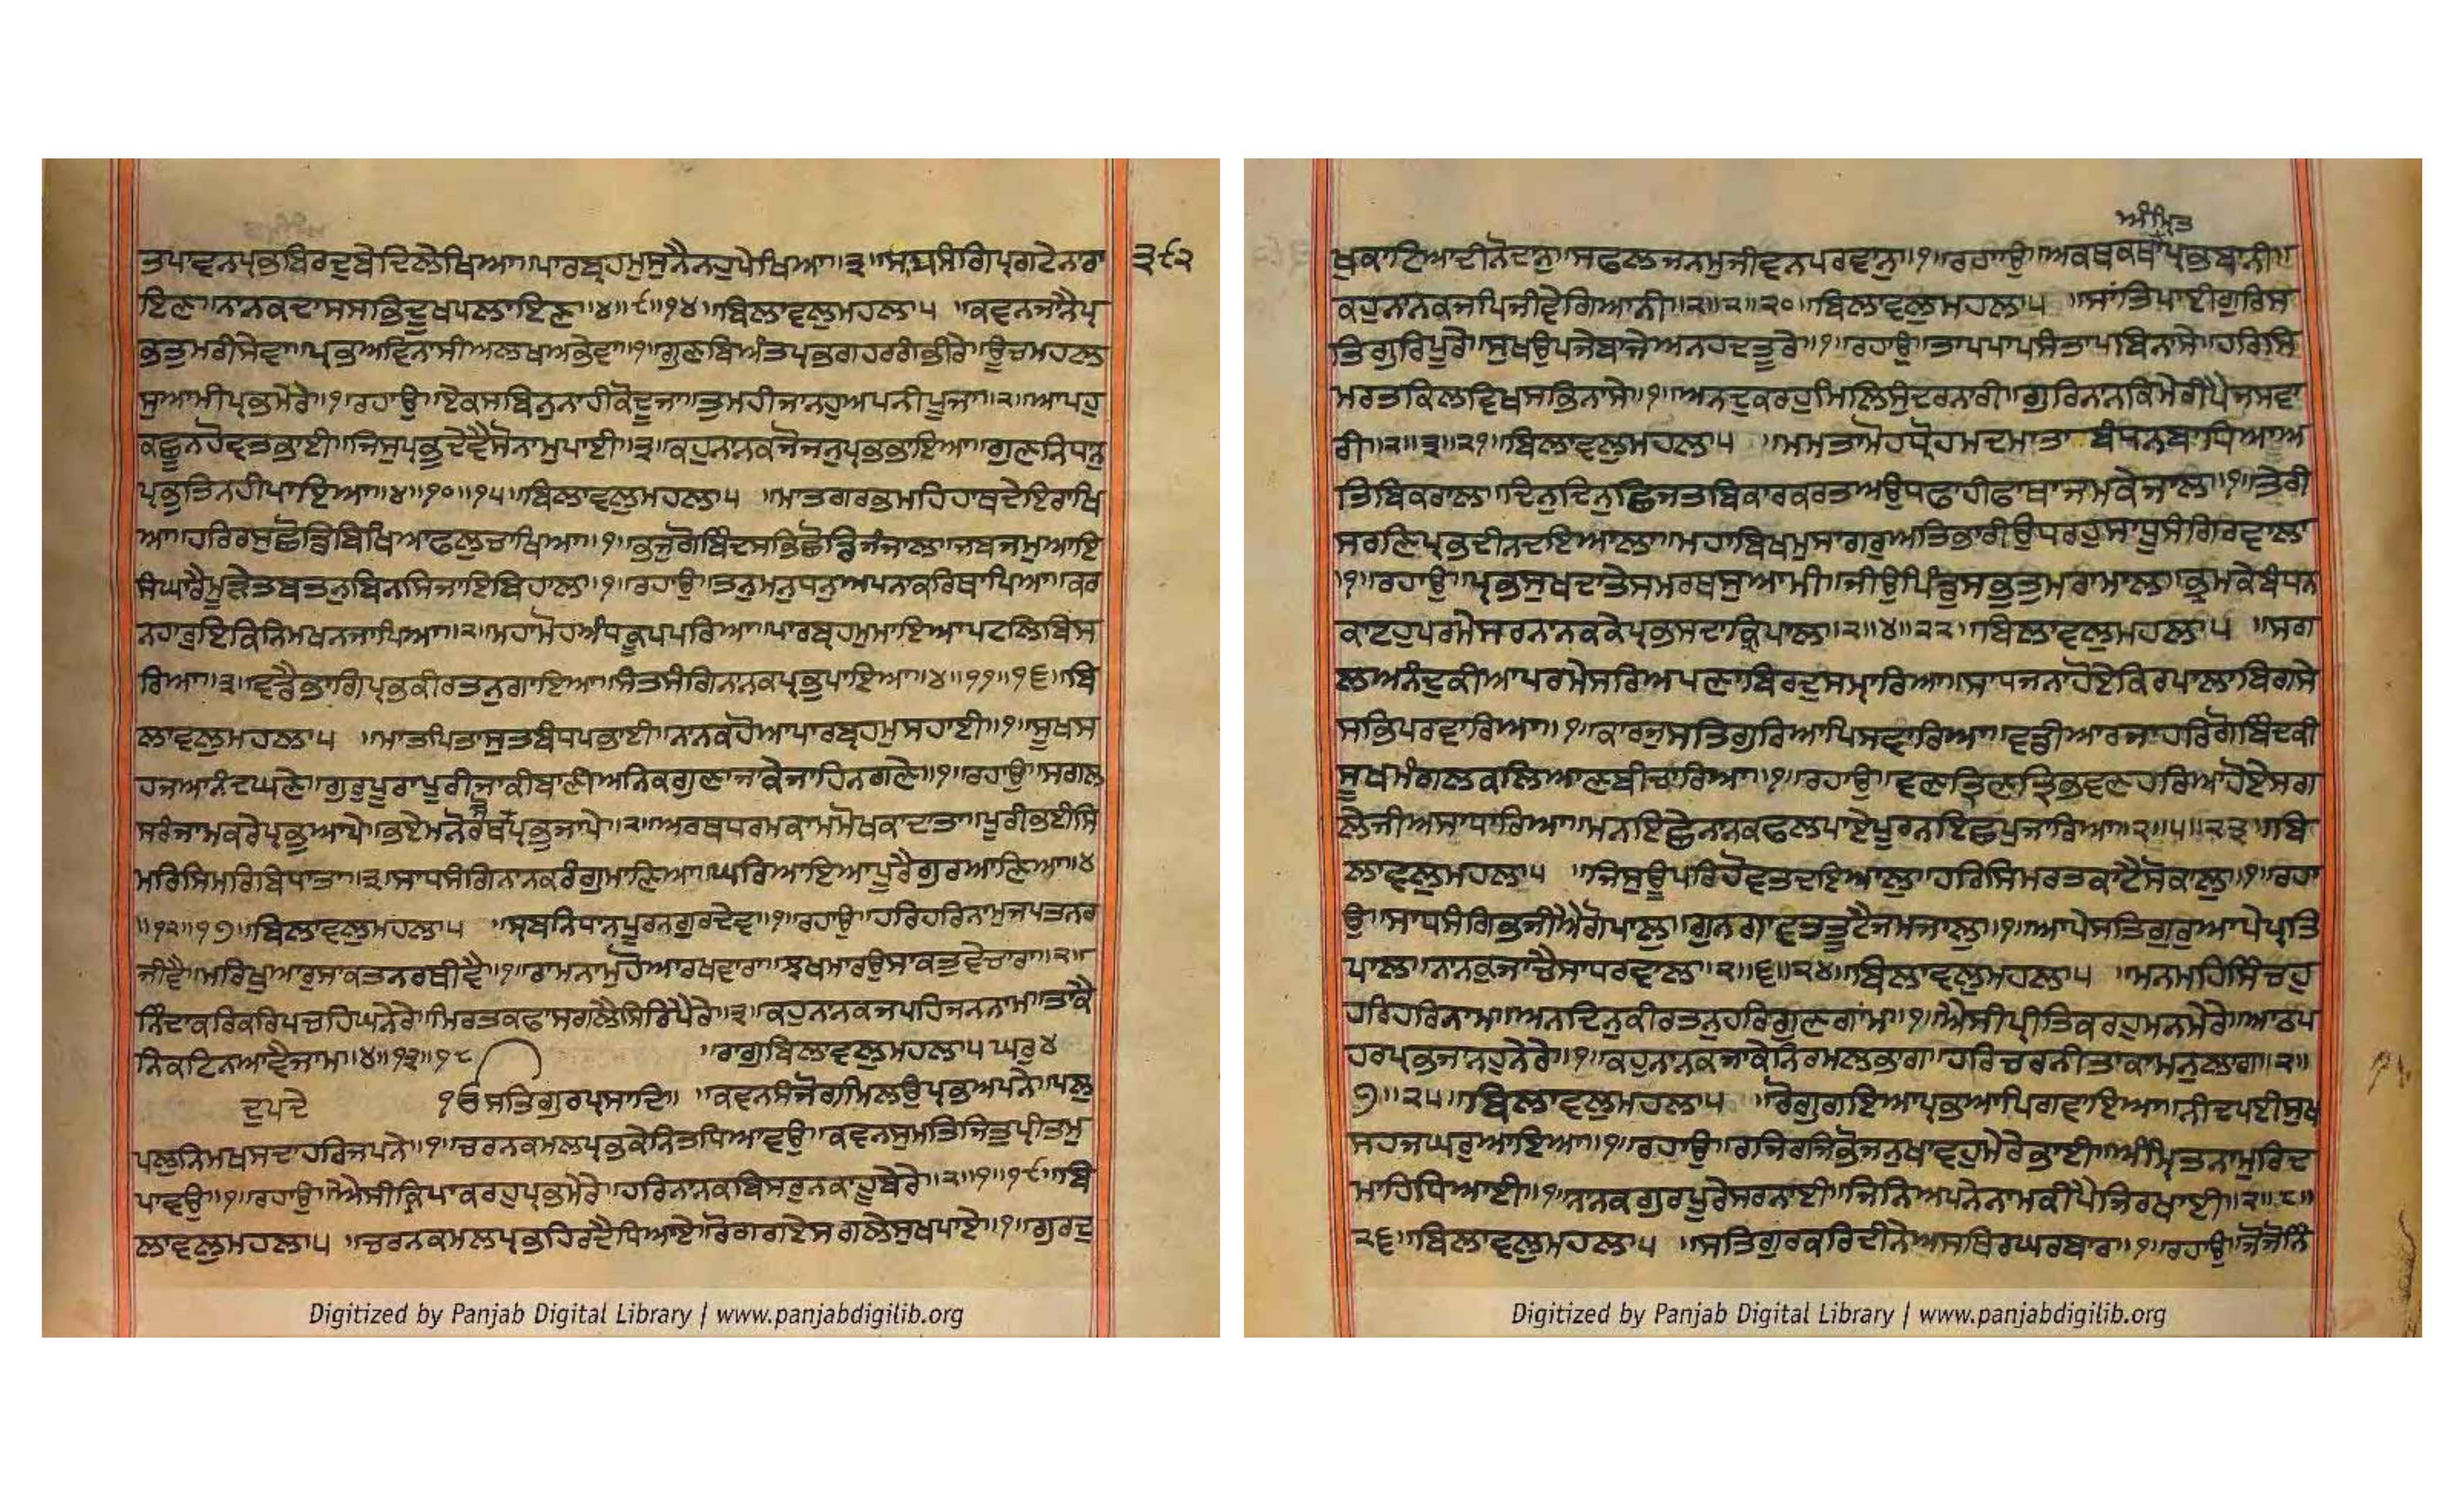 ਤਪਾਵਨਪ੍ਰਭਬਿਰਦੁਬੇਦਿਲੇਖਿਆ॥ਪਾਰਬ੍ਰਹਮੁਸੁਨੈਨਹੁਪੇਖਿਆ॥੩॥ਸਾਧਸੰਗਿਪ੍ਰਗਟੇਨਾਰਾ
੩੯੨
ਇਣ॥ਨਾਨਕਦਾਸਸਭਿਦੂਖਪਲਾਇਣ॥੪॥੯॥੧੪॥ਬਿਲਾਵਲੁਮਹਲਾ੫ ॥ਕਵਨਜਾਨੈਪ੍ਰ
ਭਤੁਮਰੀਸੇਵਾ॥ਪ੍ਰਭਅਵਿਨਾਸੀਅਲਖਅਭੇਵਾ॥੧॥ਗੁਣਬਿਅੰਤਪ੍ਰਭਗਹਰਗੰਭੀਰੇ॥ਊਚਮਹਲ
ਸੁਆਮੀਪ੍ਰਭਮੇਰੇ॥੧॥ਰਹਾਉ॥ਏਕਸਬਿਨੁਨਾਹੀਕੋਦੂਜਾ॥ਤੁਮਹੀਜਾਨਹੁਅਪਨੀਪੂਜਾ॥੨॥ਆਪਹੁ
ਕਛੂਨਹੋਵਤਭਾਈ॥ਜਿਸੁਪ੍ਰਭੁਦੇਵੈਸੋਨਾਮੁਪਾਈ॥੩॥ਕਹੁਨਾਨਕਜੋਜਨੁਪ੍ਰਭਭਾਇਆ॥ਗੁਣਨਿਧਾਨ
ਪ੍ਰਭੁਤਿਨਹੀਪਾਇਆ॥੪॥੧੦॥੧੫॥ਬਿਲਾਵਲੁਮਹਲਾ੫ ॥ਮਾਤਗਰਭਮਹਿਹਾਥਦੇਇਰਾਖਿ
ਆ॥ਹਰਿਰਸੁਛੋਡਿਬਿਖਿਆਫਲੁਚਾਖਿਆ॥੧॥ਭਜੁਗੋਬਿੰਦਸਭਿਛੋਡਿਜੰਜਾਲਾ॥ਜਬਜਮੁਆਇ
ਸੰਘਾਰੈਮੂੜੇਤਬਤਨੁਬਿਨਸਿਜਾਇਬਿਹਾਲਾ॥੧॥ਰਹਾਉ॥ਤਨੁਮਨੁਧਨੁਅਪਨਾਕਰਿਥਾਪਿਆ॥ਕਰ
ਨਹਾਰੁਇਕਿਨਿਮਖਨਜਾਪਿਆ॥੨॥ਮਹਾਮੋਹਅੰਧਕੂਪਪਰਿਆ॥ਪਾਰਬ੍ਰਹਮੁਮਾਇਆਪਟਲਿਬਿਸ
ਰਿਆ॥੩॥ਵਡੈਭਾਗਿਪ੍ਰਭਕੀਰਤਨੁਗਾਇਆ॥ਸੰਤਸੰਗਿਨਾਨਕਪ੍ਰਭੁਪਾਇਆ॥੪॥੧੧॥੧੬॥ਬਿ
ਲਾਵਲੁਮਹਲਾ੫ ॥ਮਾਤਪਿਤਾਸੁਤਬੰਧਪਭਾਈ॥ਨਾਨਕਹੋਆਪਾਰਬ੍ਰਹਮੁਸਹਾਈ॥੧॥ਸੂਖਸ
ਹਜਆਨੰਦਘਣੇ॥ਗੁਰੁਪੂਰਾਪੂਰੀਜਾਕੀਬਾਣੀਅਨਿਕਗੁਣਾਜਾਕੇਜਾਹਿਨਗਣੇ॥੧॥ਰਹਾਉ॥ਸਗਲ
ਸਰੰਜਾਮਕਰੇਪ੍ਰਭੁਆਪੇ॥ਭਏਮਨੋਰਥਪ੍ਰਭੁਜਾਪੇ॥੨॥ਅਰਥਧਰਮਕਾਮਮੋਖਕਾਦਾਤਾ॥ਪੂਰੀਭਈਸਿ
ਮਰਿਸਿਮਰਿਬਿਧਾਤਾ॥੩॥ਸਾਧਸੰਗਿਨਾਨਕਰੰਗੁਮਾਣਿਆ॥ਘਰਿਆਇਆਪੂਰੈਗੁਰਆਣਿਆ॥੪
॥੧੨॥੧੭॥ਬਿਲਾਵਲੁਮਹਲਾ੫ ॥ਸ੍ਰਬਨਿਧਾਨਪੂਰਨਗੁਰਦੇਵ॥੧॥ਰਹਾਉ॥ਹਰਿਹਰਿਨਾਮੁਜਪਤਨਰ
ਜੀਵੈ॥ਮਰਿਖੁਆਰੁਸਾਕਤਨਰਥੀਵੈ॥੧॥ਰਾਮਨਾਮੁਹੋਆਰਖਵਾਰਾ॥ਝਖਮਾਰਉਸਾਕਤੁਵੇਚਾਰਾ॥੨॥
ਨਿੰਦਾਕਰਿਕਰਿਪਚਹਿਘਨੇਰੇ॥ਮਿਰਤਕਫਾਸਗਲੈਸਿਰਿਪੈਰੇ॥੩॥ਕਹੁਨਾਨਕਜਪਹਿਜਨਨਾਮ॥ਤਾਕੈ
ਨਿਕਟਿਨਆਵੈਜਾਮ॥੪॥੧੩॥੧੮ ॥ਰਾਗੁਬਿਲਾਵਲੁਮਹਲਾ੫ਘਰੁ੪
ਦੁਪਦੇ ੴਸਤਿਗੁਰਪ੍ਰਸਾਦਿ॥ ॥ਕਵਨਸੰਜੋਗਮਿਲਉਪ੍ਰਭਅਪਨੇ॥ਪਲੁ
ਪਲੁਨਿਮਖਸਦਾਹਰਿਜਪਨੇ॥੧॥ਚਰਨਕਮਲਪ੍ਰਭਕੇਨਿਤਧਿਆਵਉ॥ਕਵਨਸੁਮਤਿਜਿਤੁਪ੍ਰੀਤਮੁ
ਪਾਵਉ॥੧॥ਰਹਾਉ॥ਐਸੀਕ੍ਰਿਪਾਕਰਹੁਪ੍ਰਭਮੇਰੇ॥ਹਰਿਨਾਨਕਬਿਸਰੁਨਕਾਹੂਬੇਰੇ॥੨॥੧॥੧੯॥ਬਿ
ਲਾਵਲੁਮਹਲਾ੫ ॥ਚਰਨਕਮਲਪ੍ਰਭਹਿਰਦੈਧਿਆਏ॥ਰੋਗਗਏਸਗਲੇਸੁਖਪਾਏ॥੧॥ਗੁਰਦੁ
Digitized by Panjab Digital Library | www.panjabdigilib.org
ਅੰਮ੍ਰਿਤ
ਖੁਕਾਟਿਆਦੀਨੋਦਾਨੁ॥ਸਫਲਜਨਮੁਜੀਵਨਪਰਵਾਨੁ॥੧॥ਰਹਾਉ॥ਅਕਥਕਥਾਪ੍ਰਭਬਾਨੀ॥
ਕਹੁਨਾਨਕਜਪਿਜੀਵੇਗਿਆਨੀ॥੨॥੨॥੨੦॥ਬਿਲਾਵਲੁਮਹਲਾ੫ ॥ਸਾਂਤਿਪਾਈਗੁਰਿਸ
ਤਿਗੁਰਿਪੂਰੇ॥ਸੁਖਉਪਜੇਬਾਜੇਅਨਹਦਤੂਰੇ॥੧॥ਰਹਾਉ॥ਤਾਪਪਾਪਸੰਤਾਪਬਿਨਾਸੇ॥ਹਰਿਸਿ
ਮਰਤਕਿਲਵਿਖਸਭਿਨਾਸੇ॥੧॥ਅਨਦੁਕਰਹੁਮਿਲਿਸੁੰਦਰਨਾਰੀ॥ਗੁਰਿਨਾਨਕਿਮੇਰੀਪੈਜਸਵਾ
ਰੀ॥੨॥੩॥੨੧॥ਬਿਲਾਵਲੁਮਹਲਾ੫ ॥ਮਮਤਾਮੋਹਧ੍ਰੋਹਮਦਮਾਤਾ ਬੰਧਨਬਾਧਿਆਅ
ਤਿਬਿਕਰਾਲ॥ਦਿਨੁਦਿਨੁਛਿਜਤਬਿਕਾਰਕਰਤਅਉਧਫਾਹੀਫਾਥਾਜਮਕੇਜਾਲ॥੧॥ਤੇਰੀ
ਸਰਣਿਪ੍ਰਭਦੀਨਦਇਆਲਾ॥ਮਹਾਬਿਖਮੁਸਾਗਰੁਅਤਿਭਾਰੀਉਧਰਹੁਸਾਧੂਸੰਗਿਰਵਾਲਾ
॥੧॥ਰਹਾਉ॥ਪ੍ਰਭਸੁਖਦਾਤੇਸਮਰਥਸੁਆਮੀ॥ਜੀਉਪਿੰਡੁਸਭੁਤੁਮਰਾਮਾਲ॥ਭ੍ਰਮਕੇਬੰਧਨ
ਕਾਟਹੁਪਰਮੇਸਰਨਾਨਕਕੇਪ੍ਰਭਸਦਾਕ੍ਰਿਪਾਲ॥੨॥੪॥੨੨॥ਬਿਲਾਵਲੁਮਹਲਾ੫ ॥ਸਗ
ਲਅਨੰਦੁਕੀਆਪਰਮੇਸਰਿਅਪਣਾਬਿਰਦੁਸਮ੍ਹਾਰਿਆ॥ਸਾਧਜਨਾਹੋਏਕਿਰਪਾਲਾਬਿਗਸੇ
ਸਭਿਪਰਵਾਰਿਆ॥੧॥ਕਾਰਜੁਸਤਿਗੁਰਿਆਪਿਸਵਾਰਿਆ॥ਵਡੀਆਰਜਾਹਰਿਗੋਬਿੰਦਕੀ
ਸੂਖਮੰਗਲਕਲਿਆਣਬੀਚਾਰਿਆ॥੧॥ਰਹਾਉ॥ਵਣਤ੍ਰਿਣਤ੍ਰਿਭਵਣਹਰਿਆਹੋਏਸਗ
ਲੇਜੀਅਸਾਧਾਰਿਆ॥ਮਨਇਛੇਨਾਨਕਫਲਪਾਏਪੂਰਨਇਛਪੁਜਾਰਿਆ॥੨॥੫॥੨੩॥ਬਿ
ਲਾਵਲੁਮਹਲਾ੫ ॥ਜਿਸੁਊਪਰਿਹੋਵਤਦਇਆਲੁ॥ਹਰਿਸਿਮਰਤਕਾਟੈਸੋਕਾਲੁ॥੧॥ਰਹਾ
ਉ॥ਸਾਧਸੰਗਿਭਜੀਐਗੋਪਾਲੁ॥ਗੁਨਗਾਵਤਤੂਟੈਜਮਜਾਲੁ॥੧॥ਆਪੇਸਤਿਗੁਰੁਆਪੇਪ੍ਰਤਿ
ਪਾਲ॥ਨਾਨਕੁਜਾਚੈਸਾਧਰਵਾਲ॥੨॥੬॥੨੪॥ਬਿਲਾਵਲੁਮਹਲਾ੫ ॥ਮਨਮਹਿਸਿੰਚਹੁ
ਹਰਿਹਰਿਨਾਮ॥ਅਨਦਿਨੁਕੀਰਤਨੁਹਰਿਗੁਣਗਾਂਮ॥੧॥ਐਸੀਪ੍ਰੀਤਿਕਰਹੁਮਨਮੇਰੇ॥ਆਠਪ
ਹਰਪ੍ਰਭਜਾਨਹੁਨੇਰੇ॥੧॥ਕਹੁਨਾਨਕਜਾਕੇਨਿਰਮਲਭਾਗ॥ਹਰਿਚਰਨੀਤਾਕਾਮਨੁਲਾਗ॥੨॥
੭॥੨੫॥ਬਿਲਾਵਲੁਮਹਲਾ੫ ॥ਰੋਗੁਗਇਆਪ੍ਰਭਆਪਿਗਵਾਇਆ॥ਨੀਦਪਈਸੁਖ
ਸਹਜਘਰੁਆਇਆ॥੧॥ਰਹਾਉ॥ਰਜਿਰਜਿਭੋਜਨੁਖਾਵਹੁਮੇਰੇਭਾਈ॥ਅੰਮ੍ਰਿਤਨਾਮੁਰਿਦ
ਮਾਹਿਧਿਆਈ॥੧॥ਨਾਨਕਗੁਰਪੂਰੇਸਰਨਾਈ॥ਜਿਨਿਅਪਨੇਨਾਮਕੀਪੈਜਰਖਾਈ॥੨॥੮॥
੨੬॥ਬਿਲਾਵਲੁਮਹਲਾ੫ ॥ਸਤਿਗੁਰਕਰਿਦੀਨੇਅਸਥਿਰਘਰਬਾਰ॥੧॥ਰਹਾਉ॥ਜੋਜੋਨਿੰ
Digitized by Panjab Digital Library | www.panjabdigilib.org